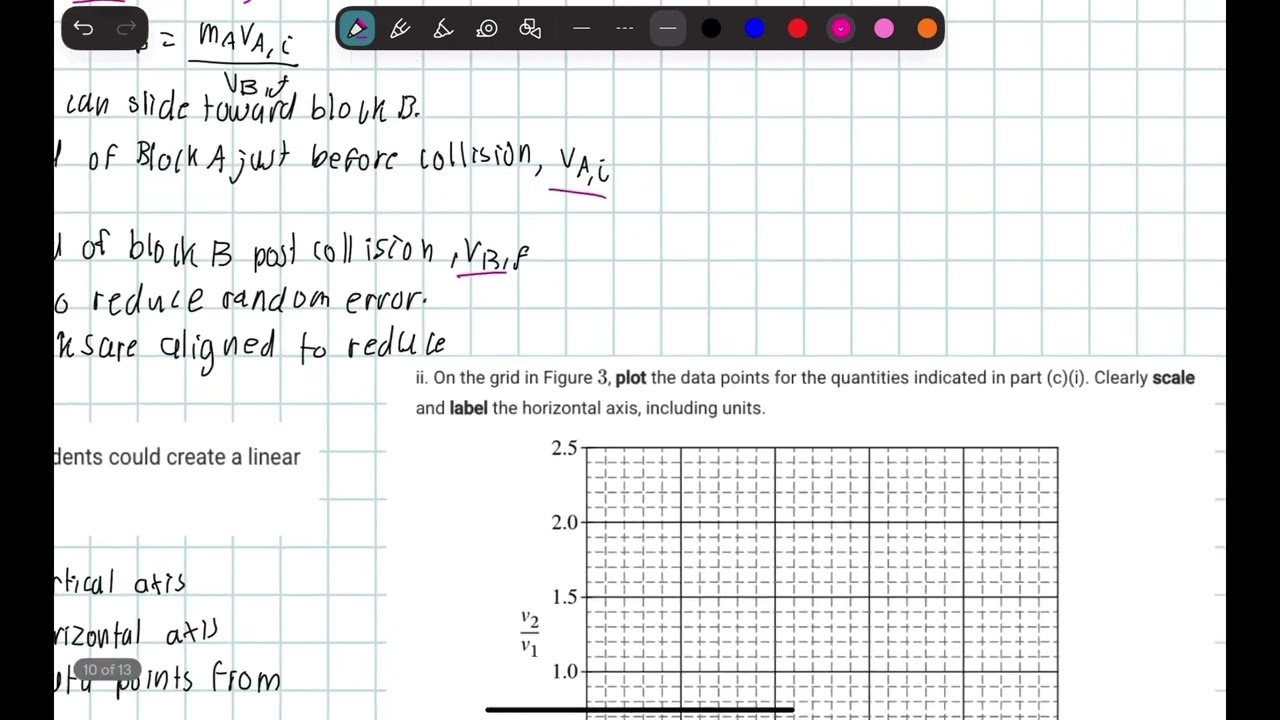 = mAvA,i
vB,f
can slide toward block B.
of Block A just before collision, vA,i
of block B post collision, vB,f
reduce random error.
are aligned to reduce
ii. On the grid in Figure 3, plot the data points for the quantities indicated in part (c)(i). Clearly scale
and label the horizontal axis, including units.
dents could create a linear
2.5
2.0
1.5
v2
v1
1.0
rtical axis
rizontal axis
points from
10 of 13